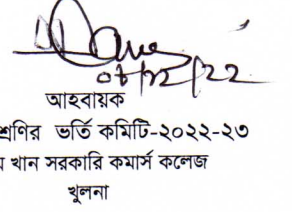 ০৮/১২/২২
আহবায়ক
শ্রেণির ভর্তি কমিটি-২০২২-২৩
খান সরকারি কমার্স কলেজ
খুলনা